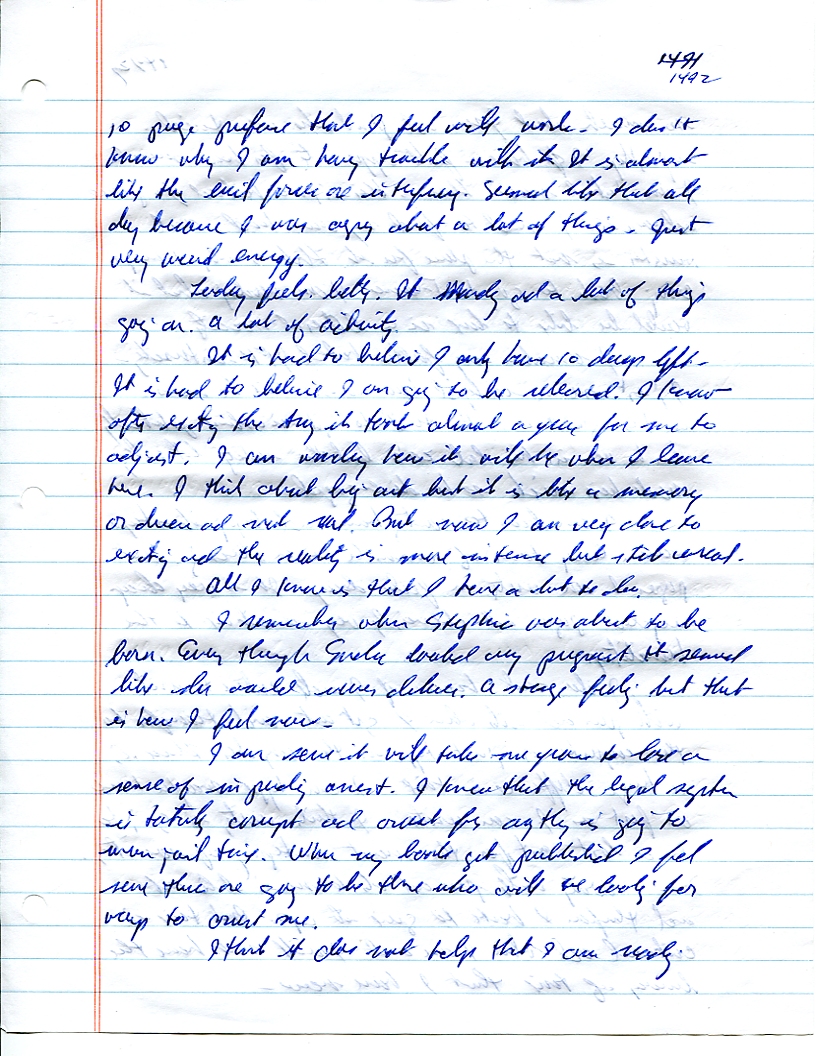 1491
1492
10 page preface that I feel will work. I don't
know why I am having trouble with it. It is almost
like the evil forces are interfering. Seemed like that all
day because I was angry about a lot of things. Just
very weird energy.
Today feels better. It and a lot of things
going on. A lot of activity.
It is hard to believe I only have 10 days left.
It is hard to believe I am going to be released. I know
after exiting the Army it took almost a year for me to
adjust. I am wondering how it will be when I leave
here. I think about being out but it is like a memory
or dream and not real. But now I am very close to
exiting and the reality is more intense but still unreal.
All I know is that I have a lot to do.
I remember when Stephie was about to be
born. Even though looked very pregnant it seemed
like she would never deliver. A strange feeling but that
is how I feel now.
I am sure it will take me years to lose a
sense of impending arrest. I know that the legal system
is totally corrupt and arrest for anything is going to
mean jail time. When my books get published I feel
sure there are going to be those who will be looking for
ways to arrest me.
I think it does not help that I am